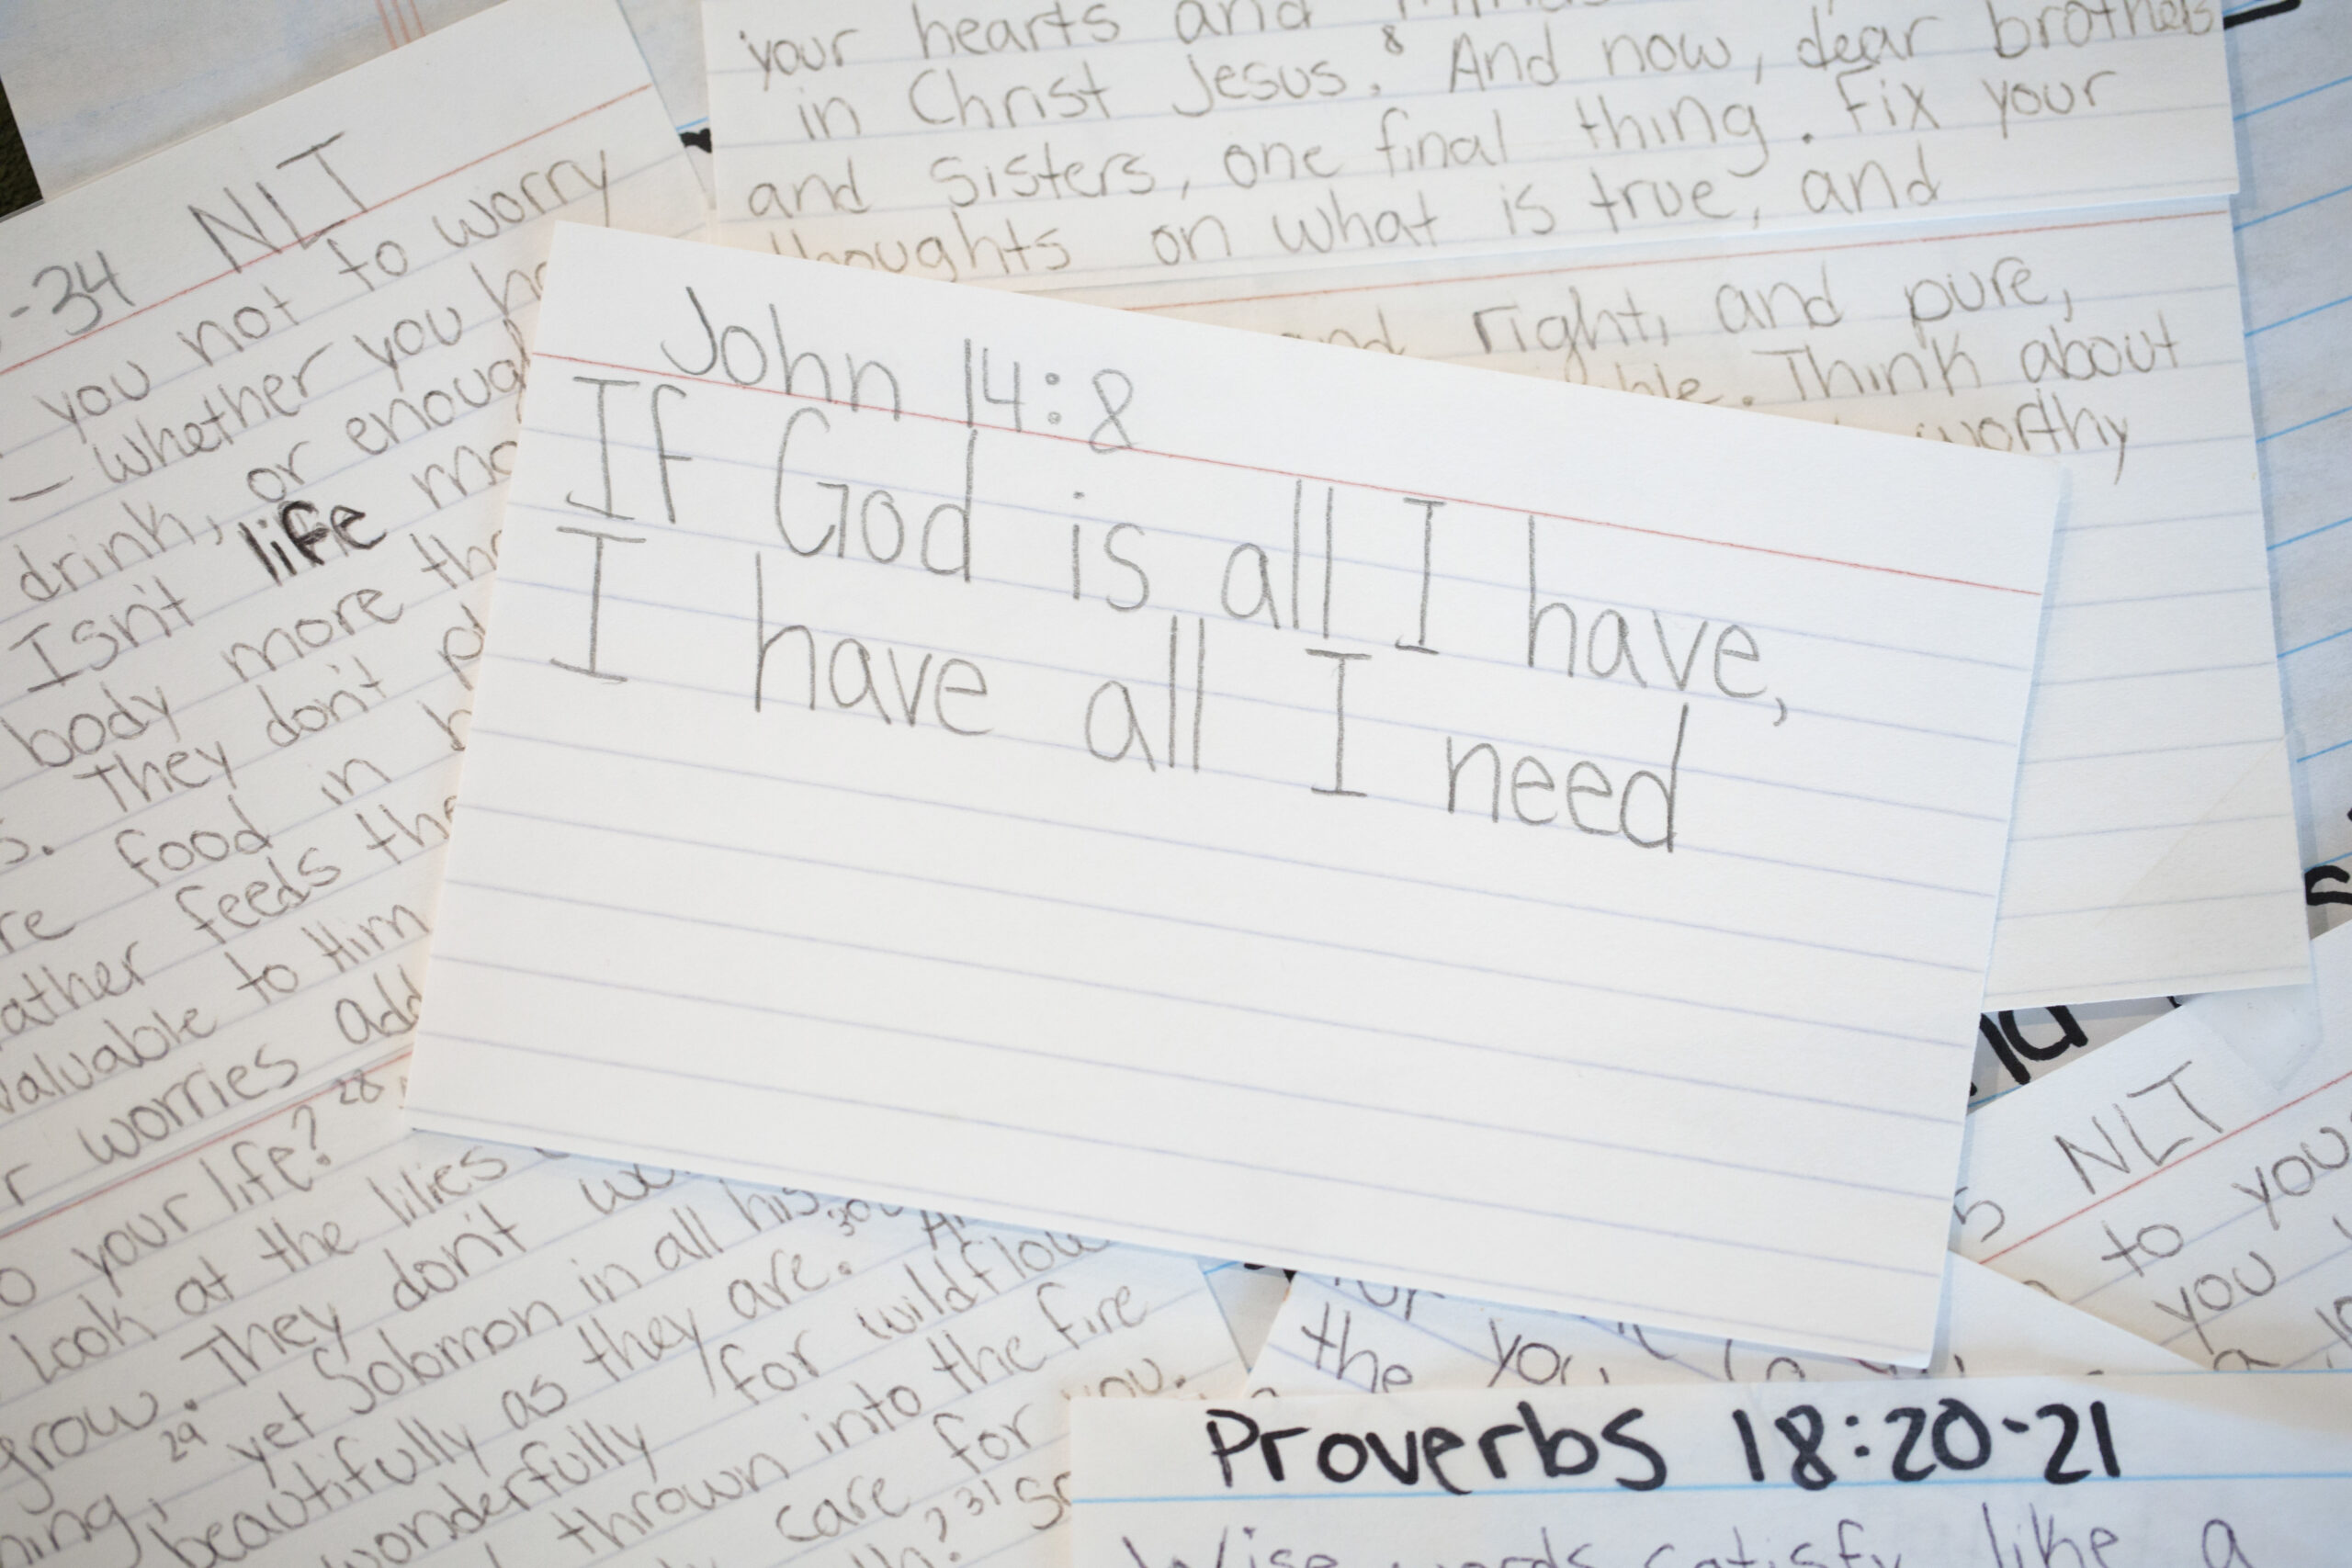 your hearts and
in Christ Jesus. 8 And now, dear brothers
and sisters, one final thing. Fix your
thoughts on what is true, and
right, and pure,
Think about
worthy
-34 NLT
you not to worry
- whether you
drink, or enough
Isn't life
body more
They don't
food in
feeds
valuable to Him
worries add
your life? 28
Look at the lilies
grow. They don't
29 yet Solomon in all his
beautifully as they are. 30
wonderfully for
thrown into the fire
care for you.
? 31 So
John 14:8
If God is all I have,
I have all I need
NLT
to you
you
the
Proverbs 18:20-21
Wise words satisfy like a